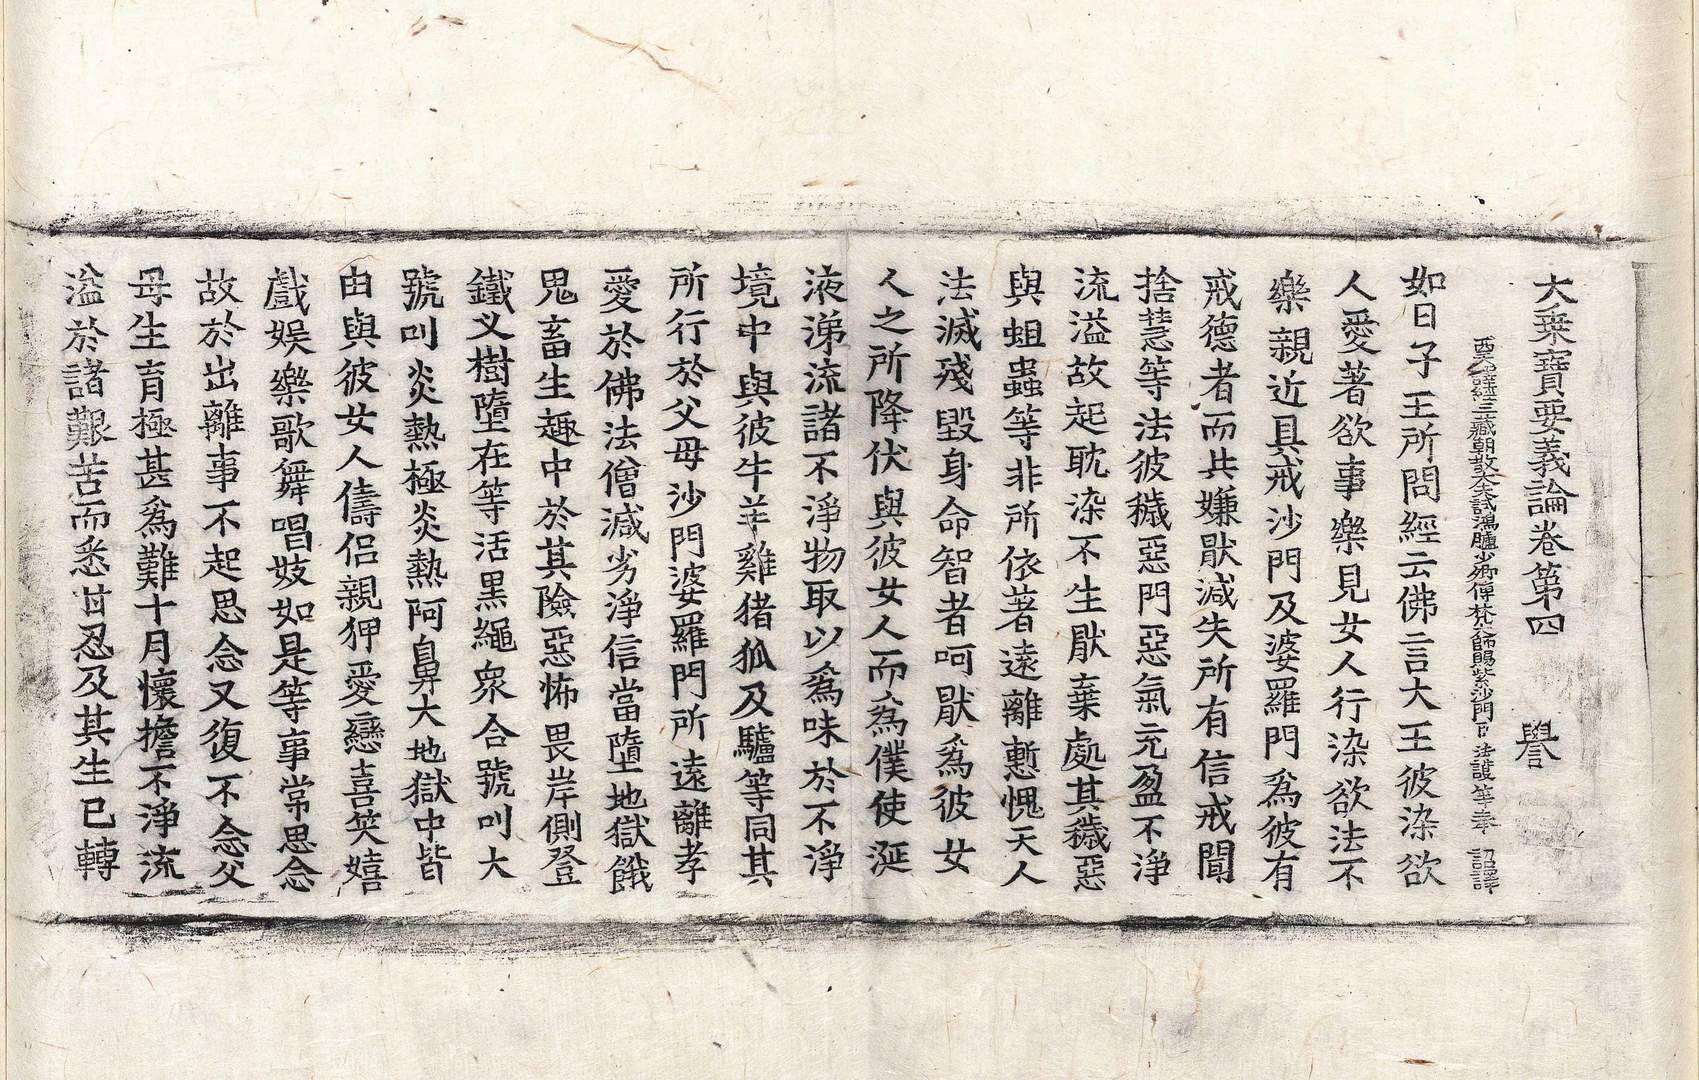 大乗寶要義論卷第四 譽
西天譯經三藏朝散大夫試鴻臚少卿傳梵大師賜紫沙門臣法護等奉 詔譯
如日子王所問經云佛言大王彼染欲
人愛著欲事樂見女人行染欲法不
樂親近具戒沙門及婆羅門爲彼有
戒德者而共嫌猒減失所有信戒聞
捨慧等法彼穢惡門惡氣充盈不淨
流溢故起耽染不生猒棄處其穢惡
與蛆蟲等非所依著遠離慙愧天人
法滅殘毀身命智者呵猒爲彼女
人之所降伏與彼女人而爲僕使涎
液涕流諸不淨物取以爲味於不淨
境中與彼牛羊雞猪狐及驢等同其
所行於父母沙門婆羅門所遠離孝
愛於佛法僧減劣淨信當墮地獄餓
鬼畜生趣中於其險惡怖畏岸側登
鐵叉樹墮在等活黑繩衆合號叫大
號叫炎熱極炎熱阿鼻大地獄中皆
由與彼女人儔侶親狎愛戀喜笑嬉
戲娛樂歌舞唱妓如是等事常思念
故於出離事不起思念又復不念父
母生育極甚爲難十月懷擔不淨流
溢於諸艱苦而悉甘忍及其生已轉